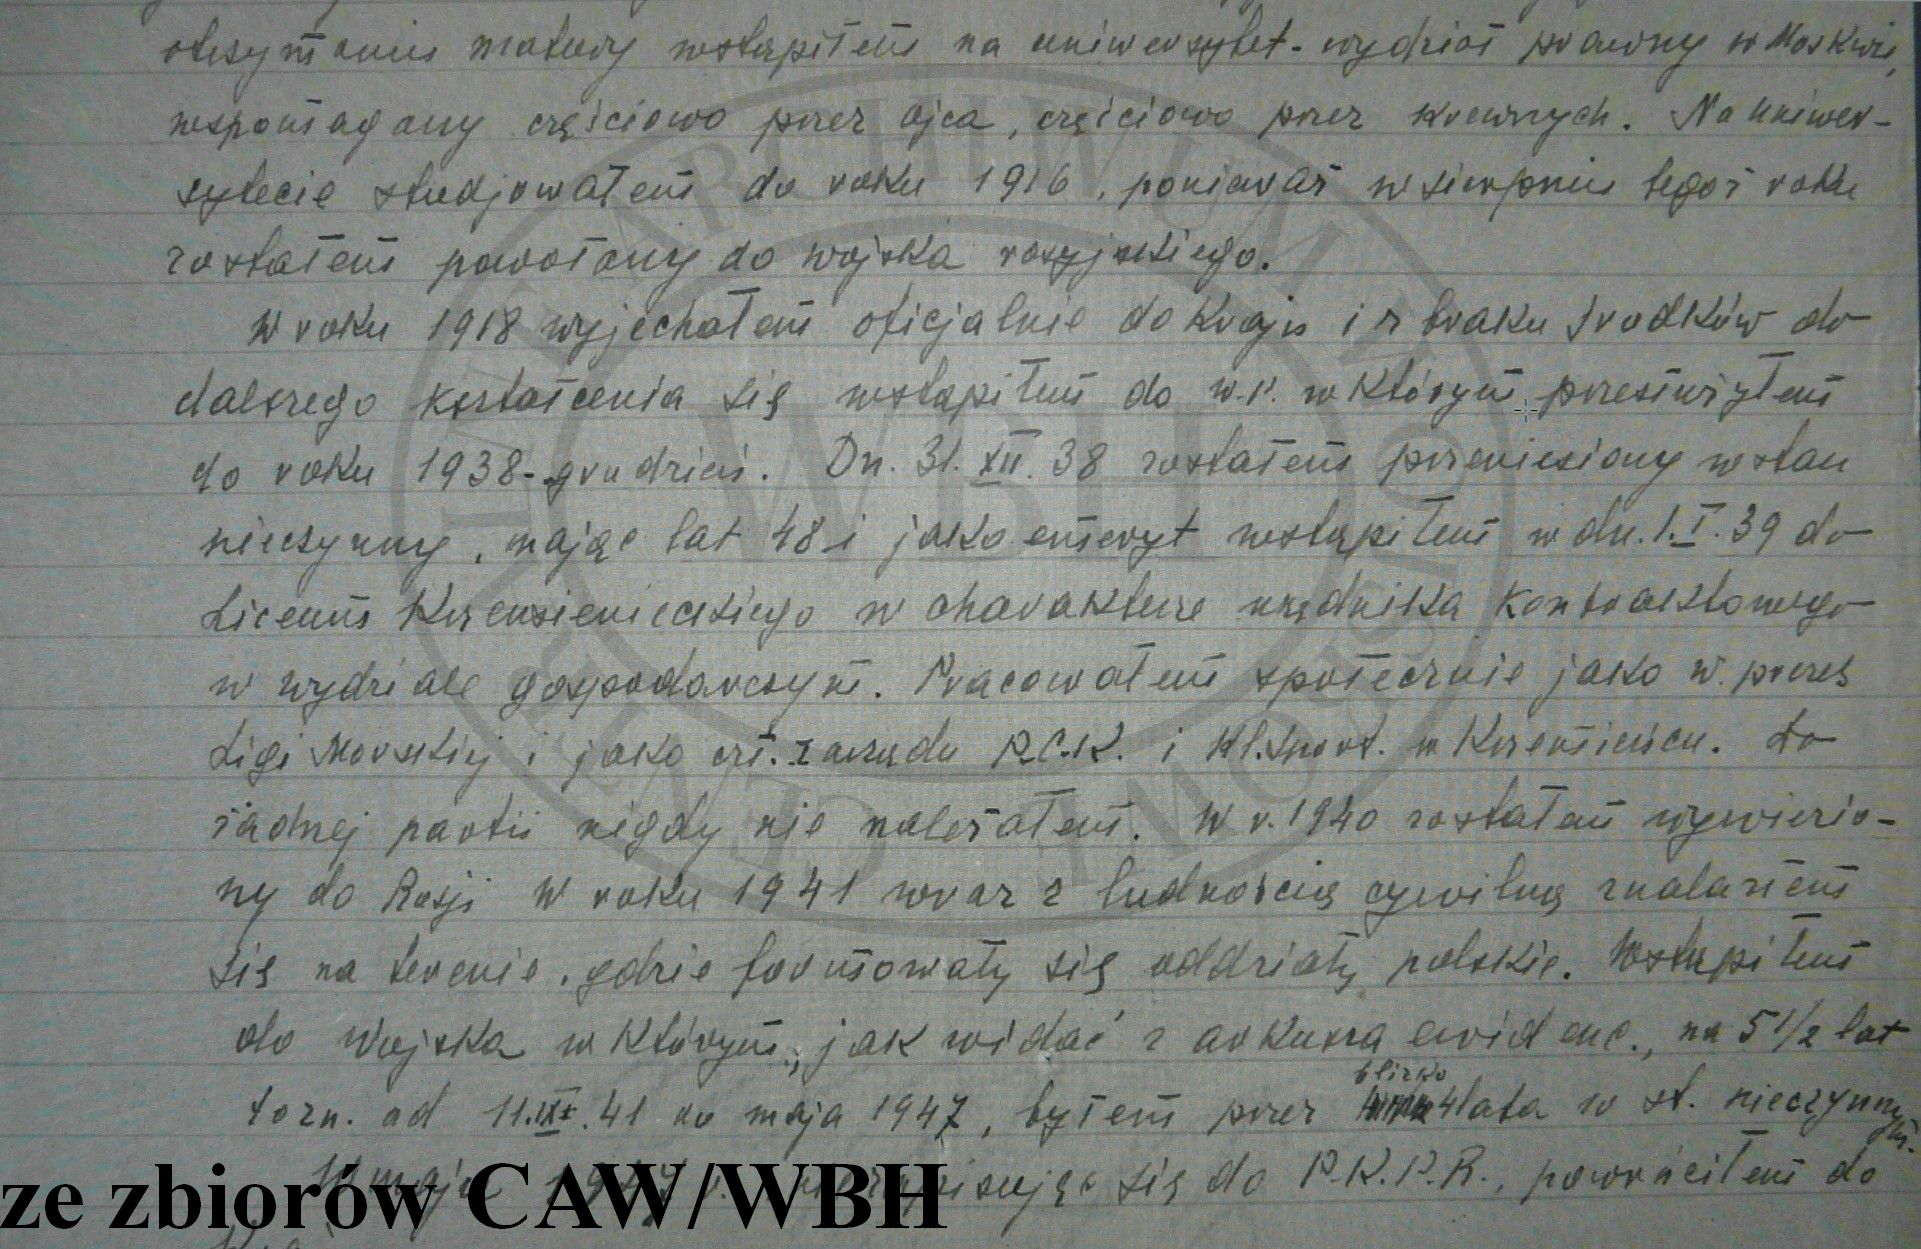 otrzymaniu matury wstąpiłem na uniwersytet - wydział prawny w Moskwie,
wspomagany częściowo przez ojca, częściowo przez krewnych. Na uniwer-
sytecie studjowałem do roku 1916, ponieważ w sierpniu tegoż roku
zostałem powołany do wojska rosyjskiego.
W roku 1918 wyjechałem oficjalnie do Kraju i z braku środków do
dalszego kształcenia się wstąpiłem do W.P. w którym przesłużyłem
do roku 1938 - grudzień. Dn. 31.XII.38 zostałem przeniesiony w stan
nieczynny, mając lat 48 i jako emeryt wstąpiłem w dn. 1.I.39 do
Liceum Krzemienieckiego w charakterze urzędnika kontraktowego
w wydziale gospodarczym. Pracowałem społecznie jako w. prezes
Ligi Morskiej i jako czł. zarządu P.C.K. i Kl. Sport. w Krzemieńcu. Do
żadnej partii nigdy nie należałem. W r. 1940 zostałem wywiezio-
ny do Rosji W roku 1941 wraz z ludnością cywilną znalazłem
się na terenie, gdzie formowały się oddziały polskie. Wstąpiłem
do Wojska w którym, jak widać z arkusza ewidenc., na 5 1/2 lat
t. zn. od 11.IX.41 do maja 1947, byłem przez blizko 4 lata w st. nieczynnym.
W maju 1947 r. nie zapisując się do P.K.P.R., powróciłem do
ze zbiorów CAW/WBH
WBH
ARCHIWUM WOJSKOWE
CENTRALNE